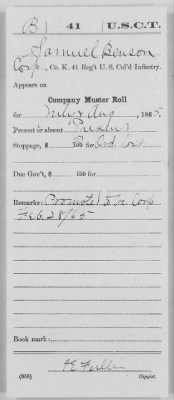 B | 41 | U.S.C.T.
Samuel Benson
Corp, Co. K, 41 Reg't U. S. Col'd Infantry.
Appears on
Company Muster Roll
for July & Aug, 1865.
Present or absent Present
Stoppage, $ 100 for
Due Gov't, $ 100 for
Remarks: Promoted to a Corp
Feb. 28/65
Book mark:
(358)
Copyist.